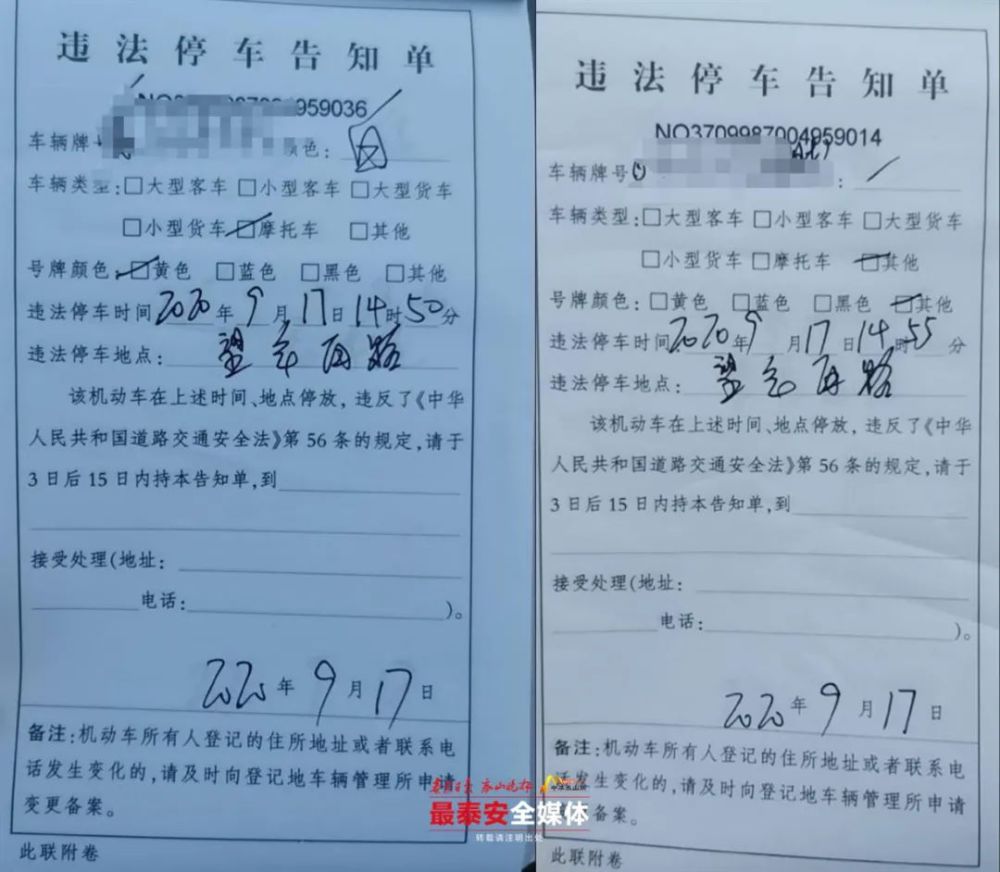 违法停车告知单
959036
车辆牌
色:
车辆类型:□大型客车 □小型客车 □大型货车
□小型货车 □摩托车 □其他
号牌颜色: □黄色 □蓝色 □黑色 □其他
违法停车时间 2020年 9 月 17 日 14 时 50 分
违法停车地点: 望岳西路
该机动车在上述时间、地点停放,违反了《中华
人民共和国道路交通安全法》第56条的规定,请于
3日后15日内持本告知单,到
接受处理(地址:
电话: )。
2020年 9 月 17 日
备注:机动车所有人登记的住所地址或者联系电
话发生变化的,请及时向登记地车辆管理所申请
变更备案。
此联附卷
违法停车告知单
NO3709987004959014
车辆牌号
:
车辆类型:□大型客车 □小型客车 □大型货车
□小型货车 □摩托车 □其他
号牌颜色:□黄色 □蓝色 □黑色 □其他
违法停车时间 2020年 9 月 17 日 14 时 55 分
违法停车地点: 望岳西路
该机动车在上述时间、地点停放,违反了《中华
人民共和国道路交通安全法》第56条的规定,请于
3日后15日内持本告知单,到
接受处理(地址:
电话: )。
2020年 9 月 17 日
备注:机动车所有人登记的住所地址或者联系电
话发生变化的,请及时向登记地车辆管理所申请
备案。
此联附卷
最泰安全媒体
转载请注明出处